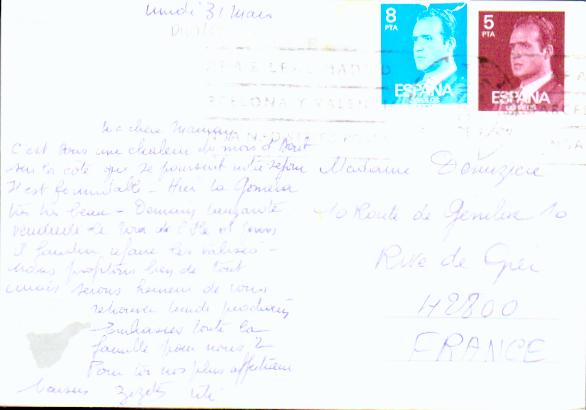 lundi 31 Mars
8
PTA
5
PTA
ESPAÑA
ESPAÑA
CORREOS
MADRID
BARCELONA Y VALEN
Ma chère Maman
C'est sous une chaleur du mois d'Août
sur la côte que se poursuit notre séjour
Il est formidable - Hier La Gomera
très très beau - Demain Lanzarote
vendredi le tour de l'île et puis
il faudra refaire les valises -
nous profitons bien de tout
mais serons heureux de vous
retrouver lundi prochain
Embrasses toute la
famille pour nous 2
Pour toi nos plus affectueux
baisers Zizette
Madame
10 Route de 10
Rive de Gier
42800
FRANCE